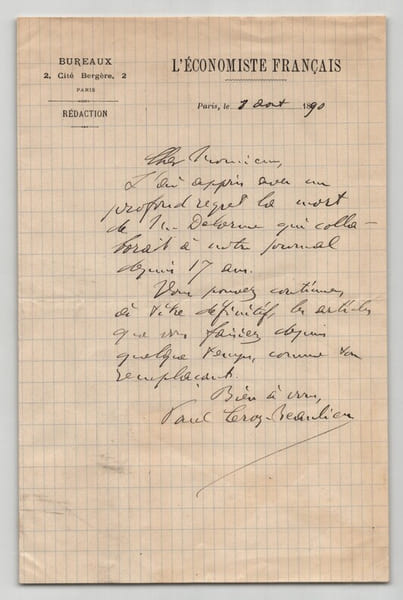 BUREAUX
2, Cité Bergère, 2
PARIS
RÉDACTION
L'ÉCONOMISTE FRANÇAIS
Paris, le 7 aout 1890
Cher Monsieur,
J'ai appris avec un
profond regret la mort
de M. Delorme qui colla-
borait à notre journal
depuis 17 ans.
Vous pouvez continuer
à titre définitif les articles
que vous faisiez depuis
quelque temps, comme son
remplaçant.
Bien à vous,
Paul Leroy-Beaulieu